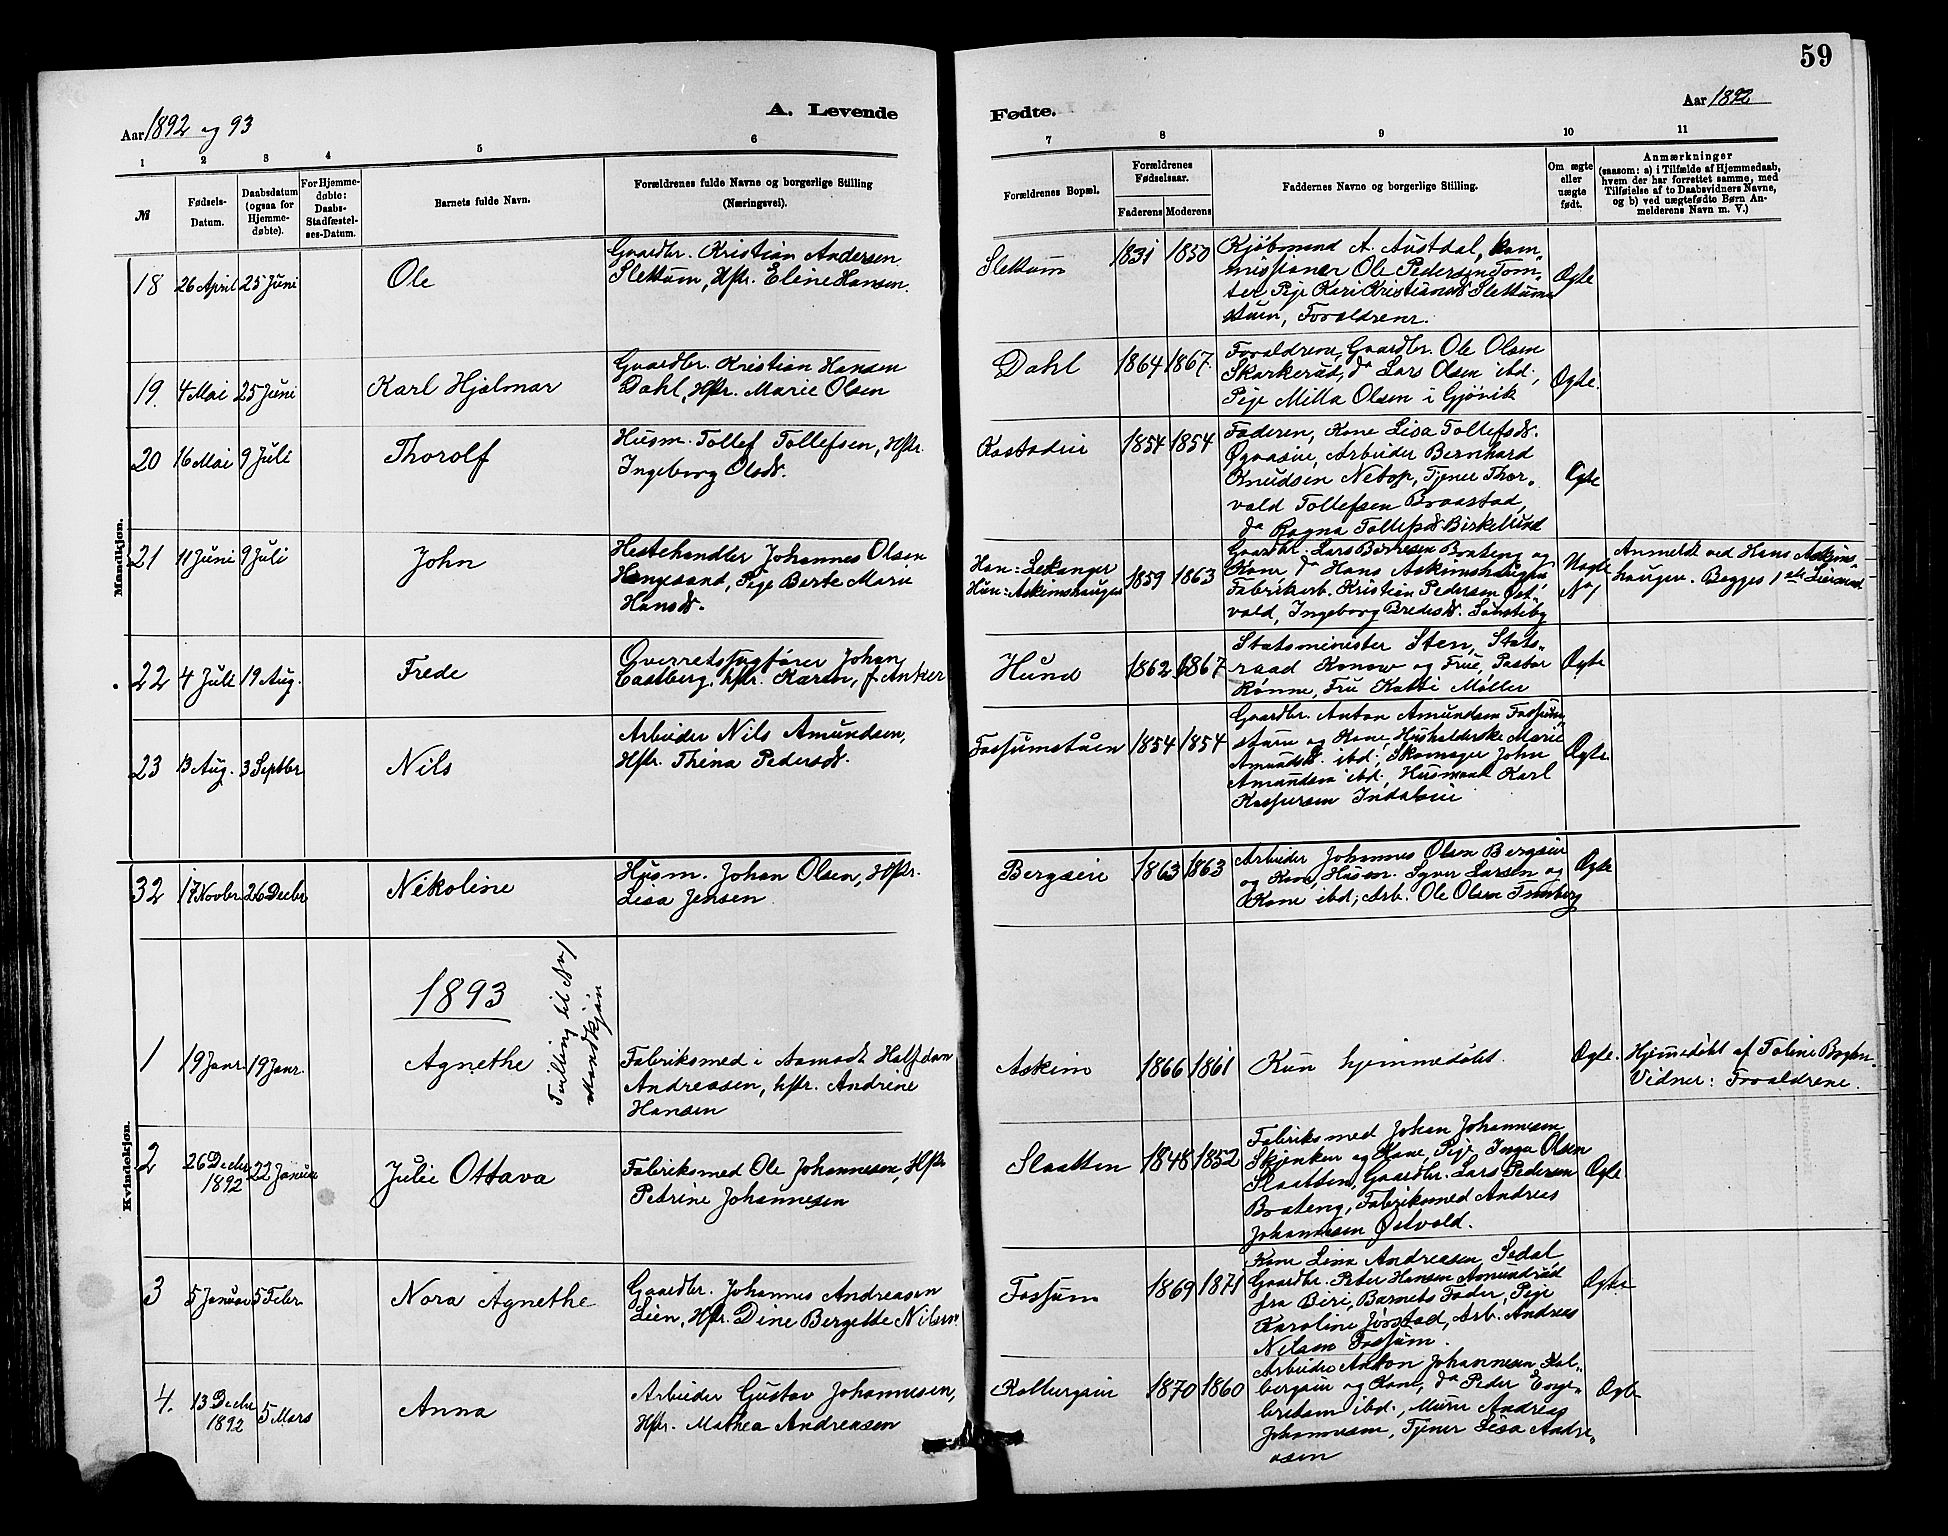 59
Aar 1892 og 93
A. Levende
Fødte.
Aar 1892
1 2 3 4 5 6
7 8 9 10 11
№
Fødsels-
Datum.
Daabsdatum
(ogsaa for
Hjemme-
døbte).
For Hjemme-
døbte:
Daabs-
Stadfæstel-
ses-Datum.
Barnets fulde Navn.
Forældrenes fulde Navne og borgerlige Stilling
(Næringsvei).
Forældrenes Bopæl.
Forældrenes
Fødselsaar.
Faderens Moderens
Faddernes Navne og borgerlige Stilling.
Om ægte
eller
uægte
født.
Anmærkninger
(saasom: a) i Tilfælde af Hjemmedaab,
hvem der har forrettet samme, med
Tilføielse af to Daabsvidners Navne,
og b) ved uægtefødte Børn An-
melderens Navn m. V.)
Mandkjøn.
18 26 April 25 Juni
Ole
Gaardbr. Kristian Andersen
Slettum, Hstr. Eline Hansen.
Slettum
1831 1850
Kjøbmand A. Austdal, kom-
missionær Ole Pedersen Tom-
ter, Pige Kari Kristiansd. Slettum
stuen, Forældrene.
Ægte
19. 4 Mai 25 Juni
Karl Hjalmar
Gaardbr. Kristian Hansen
Dahl, Hstr. Marie Olsen
Dahl
1864 1867.
Forældrene, Gaardbr. Ole Olsen
Skarkerud, do Lars Olsen ibd.,
Pige Milla Olsen i Gjøvik
Ægte.
20 16 Mai 9 Juli
Thorolf
Husm. Tollef Tollefsen, Hstr.
Ingeborg Olsd.
Kostadei
1854 1854
Faderen, Kone Lisa Tollefsd.
Arbeider Bernhard
Knudsen Netop, Tjener Thor-
vald Tollefsen Braastad,
do Ragna Tollefsd. Birkelund
Ægte
21 11 Juni 9 Juli
John
Hestehandler Johannes Olsen
Pige Berte Marie
Hansd.
Han: Lekanger
Hun: Askimshaugen
1859 1863
Gaardbr. Lars Børresen Brateng og
Kone, do Hans Askimshaugen,
Fabrikarb. Kristian Pedersen Øst-
vold, Ingeborg Bredesd. Sønsteby
Uægte
No 1
Anmeldt ved Hans Askims-
haugen. Begges 1ste Leiermaal
22 4 Juli 19 Aug.
Frede
Overretssagfører Johan
Castberg, hstr. Karen, f. Anker
Hund
1862 1867
Statsminister Sten, Stats-
raad Konow og Frue, Pastor
Rønne, Fru Katti Møller
Ægte
23 13 Aug. 3 Septbr
Nils
Arbeider Nils Amundsen,
Hstr. Thina Pedersd.
Fossumstuen
1854 1854
Gaardbr. Anton Amundsen Fossum-
stuen og Kone, Husholderske Marie
Amundsd. ibd., Skomager John
Amundsen ibd., Husmand Karl
Kaspersen Indalseie
Ægte
32 17 Novbr 26 Decbr
Nikoline
Husm. Johan Olsen, Hstr.
Lisa Jensen
Bergseie
1863 1863
Arbeider Johannes Olsen Bergseie
og Kone, Husm. Syver Larsen og
Kone ibd., Arb. Ole Olsen
Ægte
1893
Tvilling til No 1
Mandkjøn
Kvindekjøn.
1 19 Janr. 19 Janr.
Agnethe
Fabriksmed i Aamodt Halfdan
Andreassen, hstr. Andrine
Hansen
Askim
1866 1861
Kun hjemmedøbt.
Ægte.
Hjemmedøbt af Toline
Vidner: Forældrene.
2 26 Decbr 1892 22 Januar
Julie Ottava
Fabriksmed Ole Johannesen, Hstr
Petrine Johannesen
Slaatten
1848 1852
Fabriksmed Johan Johannesen
Skjenken og Kone, Pige Inga Olsen
Slaatten, Gaardbr. Lars Pedersen
Brateng, Fabriksmed Andreas
Johannesen Østvold.
Ægte.
3 5 Januar 5 Febr.
Nora Agnethe
Gaardbr. Johannes Andreasen
Lien, Hstr. Dine Bergette Nilsen
Fossum
1869 1871
Kone Lina Andreasen Sedal,
Gaardbr. Peter Hansen Amundrud
fra Biri, Barnets Fader, Pige
Karoline Jørstad, Arb. Andreas
Nilsen Fossum.
Ægte
4. 13 Decbr 1892 5 Mars
Anna
Arbeider Gustav Johannesen,
Hstr. Mathea Andreasen
Kolbergseie
1870 1860
Arbeider Anton Johannesen Kol-
bergseie og Kone, do Peder Enge-
bretsen ibd., Murer Andreas
Johannesen, Tjener Lisa Andre-
asen
Ægte